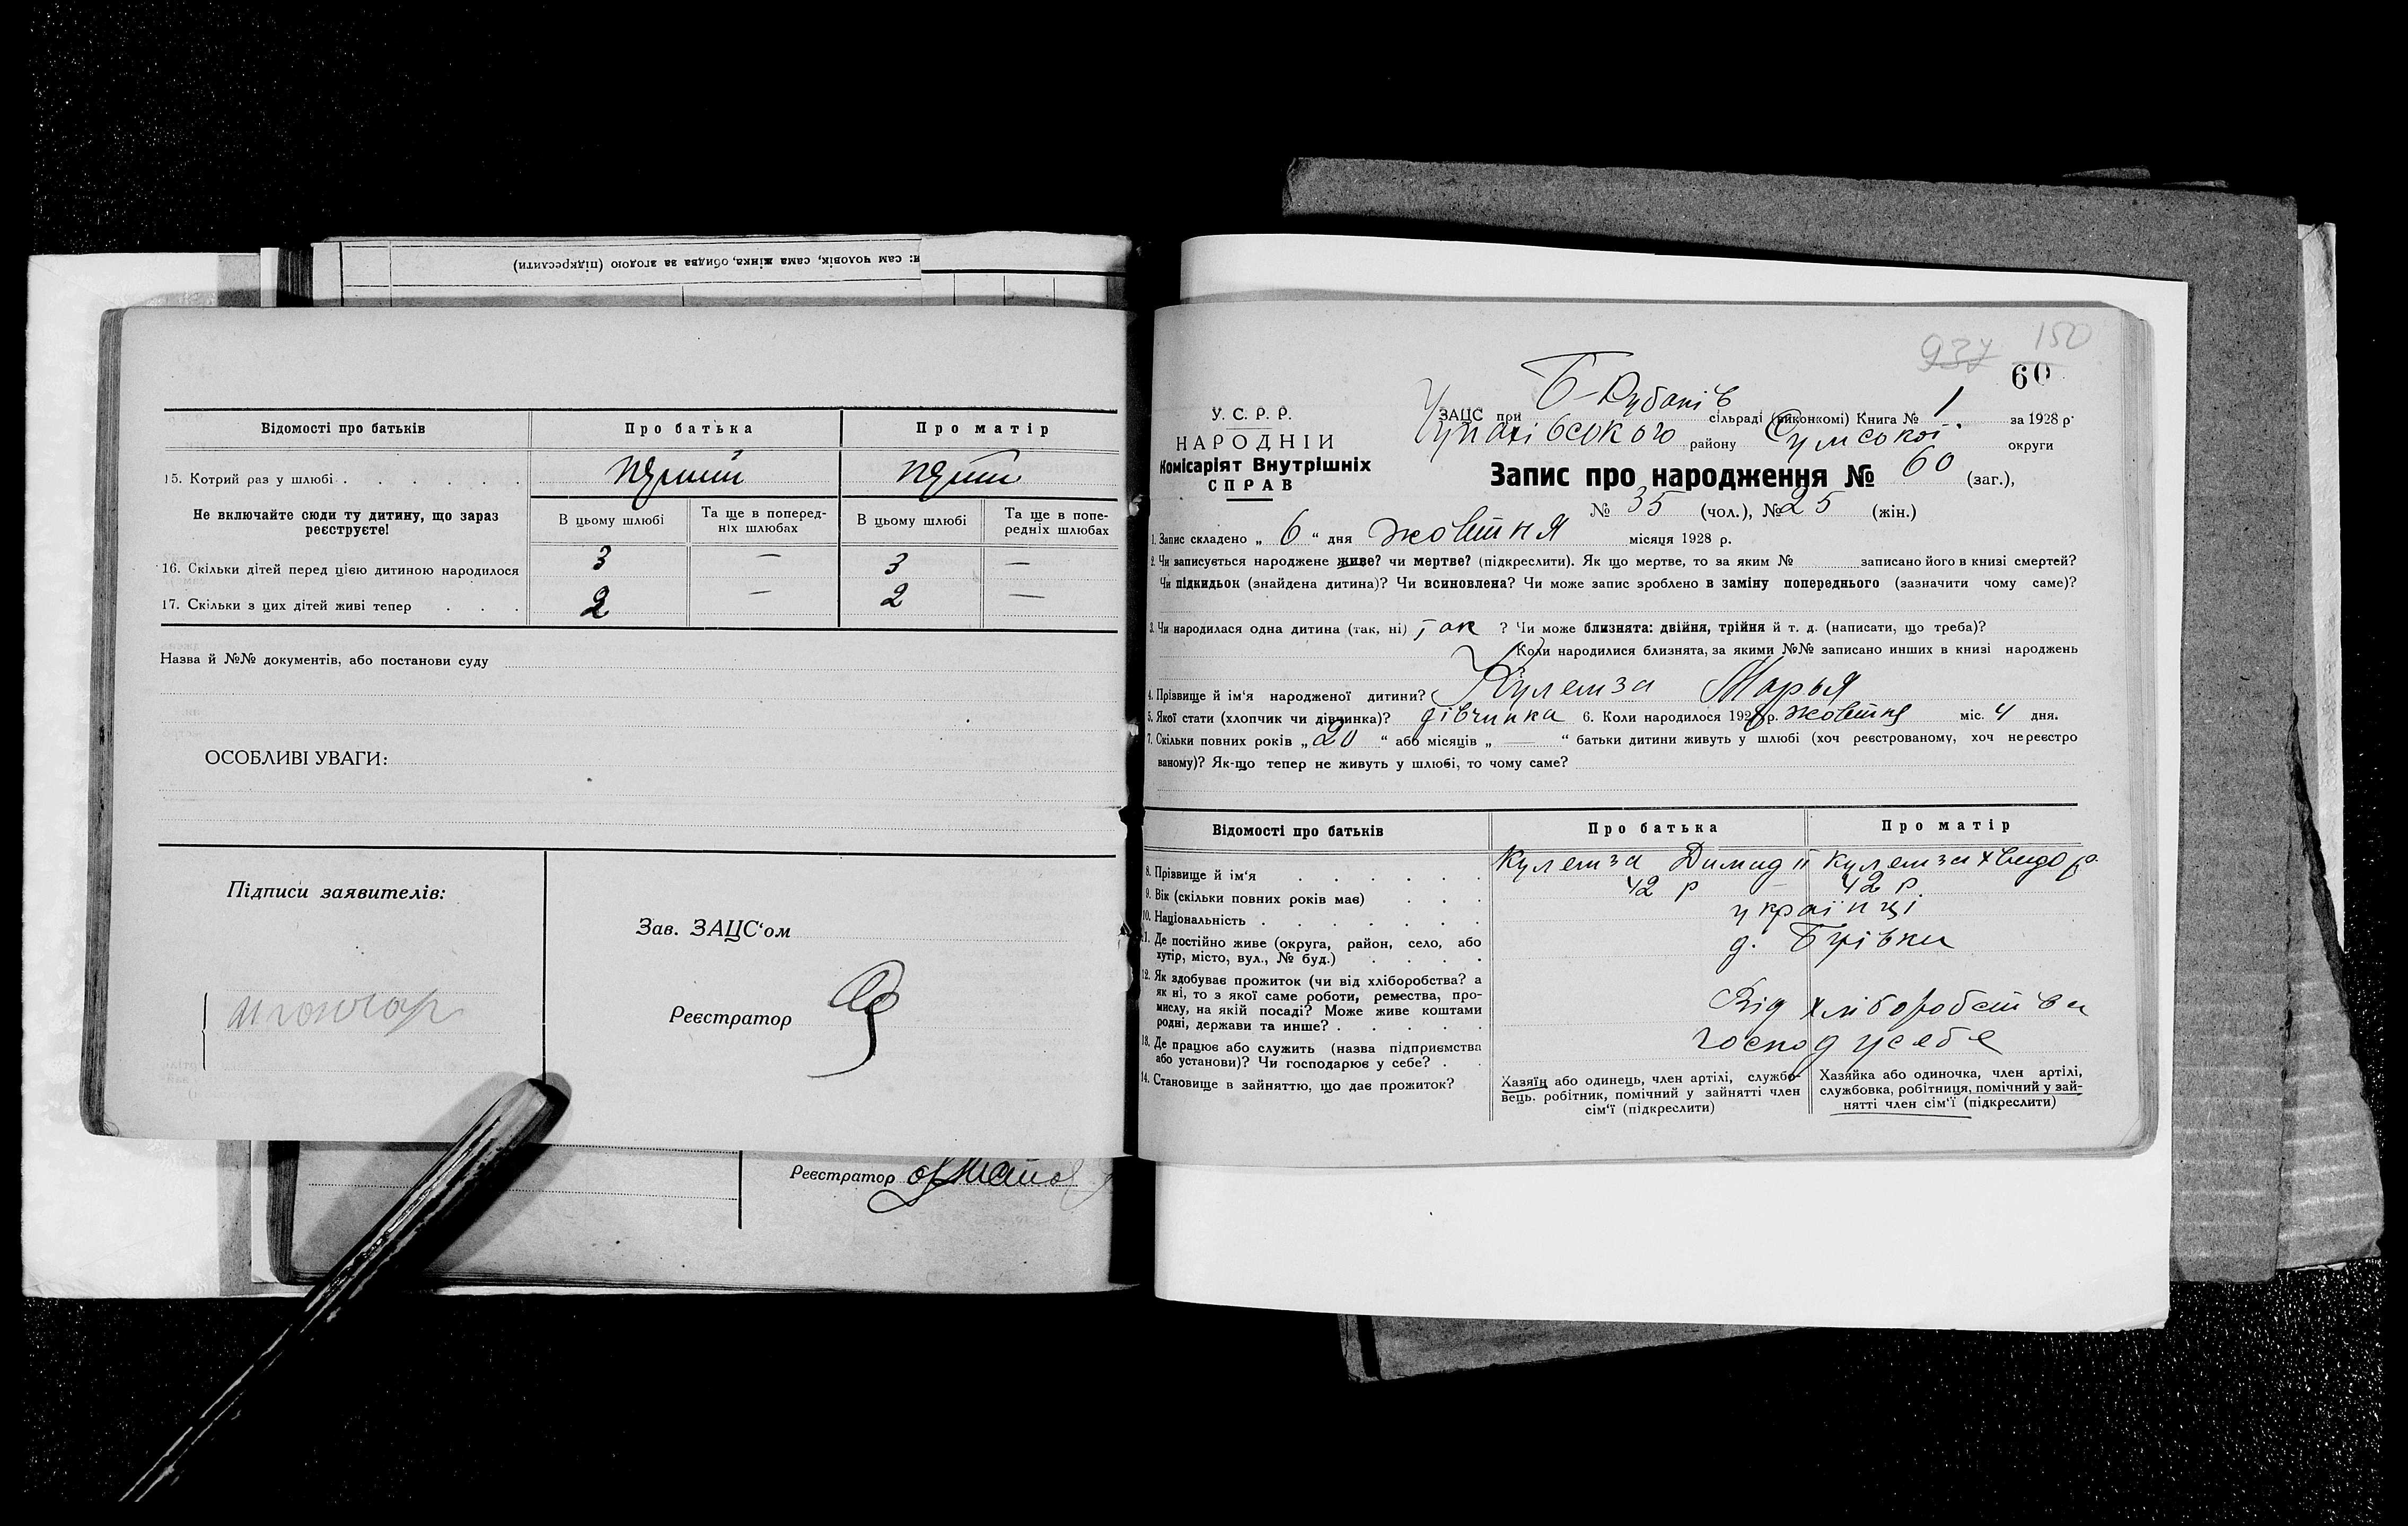 и: сам чоловік, сама жінка, обидва за згодою (підкреслити)
Відомості про батьків
Про батька
Про матір
15. Котрий раз у шлюбі
Не включайте сюди ту дитину, що зараз реєструєте!
В цьому шлюбі
Та ще в поперед-
ніх шлюбах
В цьому шлюбі
Та ще в попе-
редніх шлюбах
16. Скільки дітей перед цією дитиною народилося
3 — 3 —
17. Скільки з цих дітей живі тепер
2 — 2 —
Назва й №№ документів, або постанови суду
ОСОБЛИВІ УВАГИ:
Підписи заявителів:
Зав. ЗАЦС‘ом
Реєстратор
Реєстратор
937 150
60
У. С. Р. Р.
НАРОДНІЙ
Комісаріят Внутрішніх
СПРАВ
ЗАЦС при Б-Рубанів сільраді (виконкомі) Книга № 1 за 1928 р.
району Сумської округи
Запис про народження № 60 (заг.),
№ 35 (чол.), № 25 (жін.)
1. Запис складено „ 6 “ дня жовтня місяця 1928 р.
2. Чи записується народжене живе? чи мертве? (підкреслити). Як що мертве, то за яким № записано його в книзі смертей?
Чи підкидьок (знайдена дитина)? Чи всиновлена? Чи може запис зроблено в заміну попереднього (зазначити чому саме)?
3. Чи народилася одна дитина (так, ні) так ? Чи може близнята: двійня, трійня й т. д. (написати, що треба)?
Коли народилися близнята, за якими №№ записано инших в книзі народжень
4. Прізвище й ім‘я народженої дитини? Кулешза Марья
5. Якої стати (хлопчик чи дівчинка)? дівчинка 6. Коли народилося 1928 р. жовтня міс. 4 дня.
7. Скільки повних років „ 20 “ або місяців „ — “ батьки дитини живуть у шлюбі (хоч реєстрованому, хоч нереєстро
ваному)? Як-що тепер не живуть у шлюбі, то чому саме?
Відомості про батьків
Про батька
Про матір
8. Прізвище й ім‘я
Кулешза
Кулешза
9. Вік (скільки повних років має)
42 р — 42 р.
10. Національність
українці
11. Де постійно живе (округа, район, село, або
хутір, місто, вул., № буд.)
12. Як здобуває прожиток (чи від хліборобства? а
як ні, то з якої саме роботи, ремества, про-
мислу, на якій посаді? Може живе коштами
родні, держави та инше?
Від хліборобства
13. Де працює або служить (назва підприємства
або установи)? Чи господарює у себе?
господ у себе
14. Становище в зайняттю, що дає прожиток?
Хазяїн або одинець, член артілі, службо-
вець. робітник, помічний у зайнятті член
сім‘ї (підкреслити)
Хазяйка або одиночка, член артілі,
службовка, робітниця, помічний у зай-
нятті член сім‘ї (підкреслити)